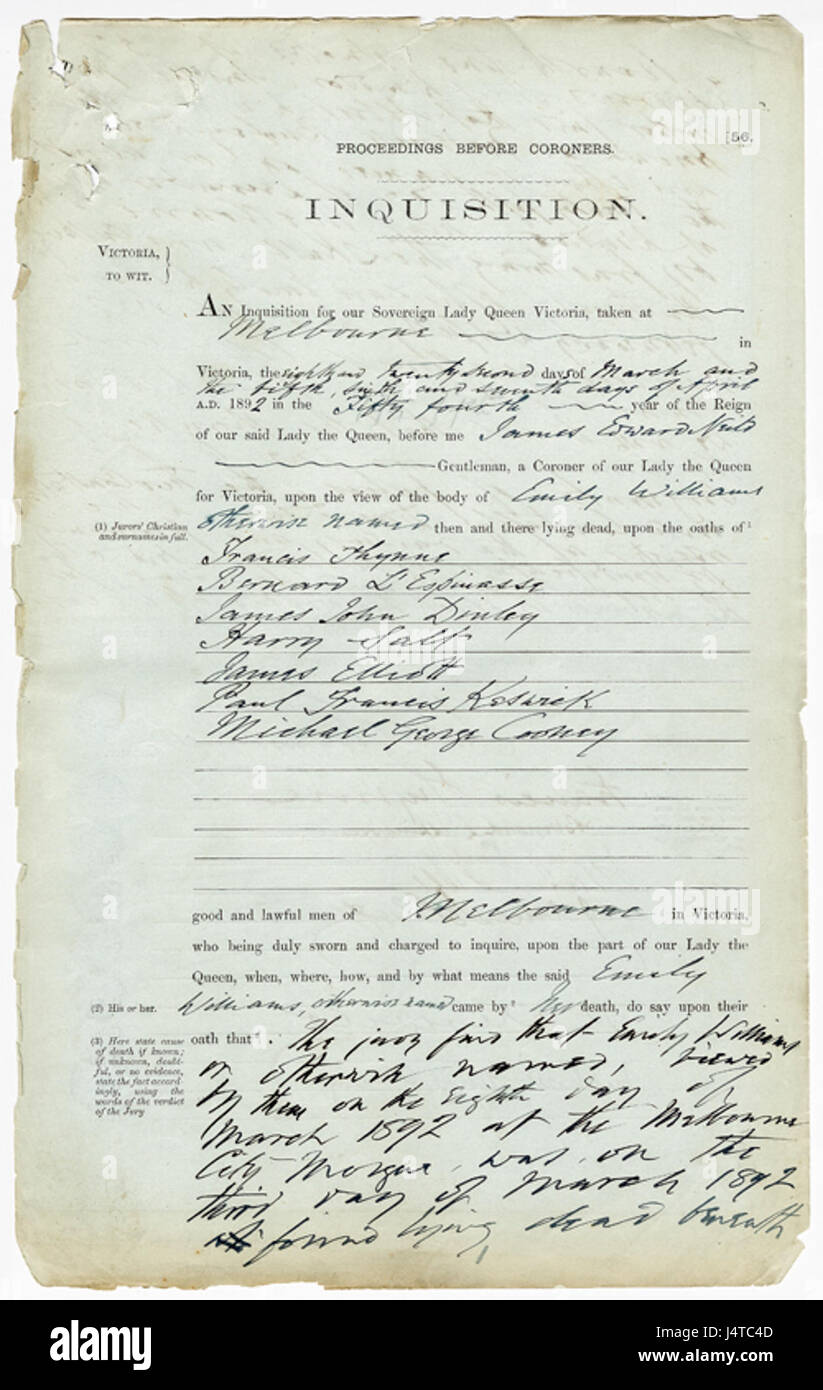 [56.
PROCEEDINGS BEFORE CORONERS.
INQUISITION.
VICTORIA,
TO WIT.
AN Inquisition for our Sovereign Lady Queen Victoria, taken at
Melbourne in
Victoria, the eighth and twenty second days of March and
the fifth, sixth and seventh days of April
A.D. 1892 in the Fifty fourth year of the Reign
of our said Lady the Queen, before me James Edward Neild
Gentleman, a Coroner of our Lady the Queen
for Victoria, upon the view of the body of Emily Williams
(1) Jurors' Christian
and surnames in full.
otherwise named then and there lying dead, upon the oaths of¹
Francis Thynne
Bernard L'Espinasse
James John Dinley
Harry Salf
James Elliott
Paul Francis Keswick
Michael George Cooney
good and lawful men of Melbourne in Victoria,
who being duly sworn and charged to inquire, upon the part of our Lady the
Queen, when, where, how, and by what means the said Emily
(2) His or her.
Williams, otherwise named came by² her death, do say upon their
(3) Here state cause
of death if known;
if unknown, doubt-
ful, or no evidence,
state the fact accord-
ingly, using the
words of the verdict
of the Jury
oath that. The jury find that Emily Williams
or otherwise named, viewed
by them on the Eighth day of
March 1892 at the Melbourne
City Morgue, was, on the
third day of March 1892
found lying dead beneath
alamy
alamy
alamy
Image ID: J4TC4D
www.alamy.com